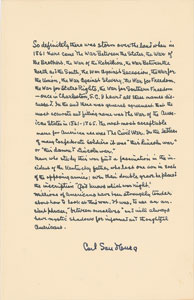 So definitely there was storm over the land when in
1861 there came The War Between the States, the War of
the Brothers, the War of the Rebellion, the War Between the
North and the South, the War Against Secession, the War for
the Union, the War Against Slavery, the War for Freedom, the
War for States Rights, the War for Southern Freedom
— once in Charleston, S.C. I heard all these names dis-
cussed. In the end there was general agreement that the
most accurate and fitting name was the War of the Amer-
ican States in 1861-1865. The most most acceptable
name for Americans was The Civil War. In the letters
of many Confederate soldiers it was "this Lincoln war"
or "this damn Lincoln war."
Men who study this war find a fascination in the in-
cident of the Kentucky father, who had one son in each
of the opposing armies, over their double grave he placed
the inscription "God knows which was right."
Millions of Americans have been strangely tender
about how to look at this war. It was, to use an an-
cient phrase, "between ourselves" and will always
have mystic shadows for informed and thoughtful
Americans.
Carl Sandburg